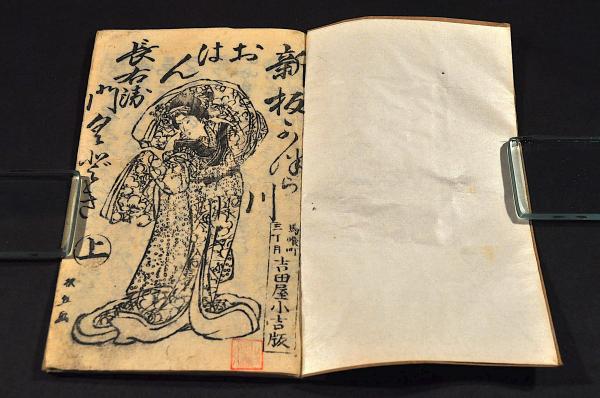 新板かつら川
おはん
長右衛門くどき
上
馬喰町
三丁目 吉田屋小吉版